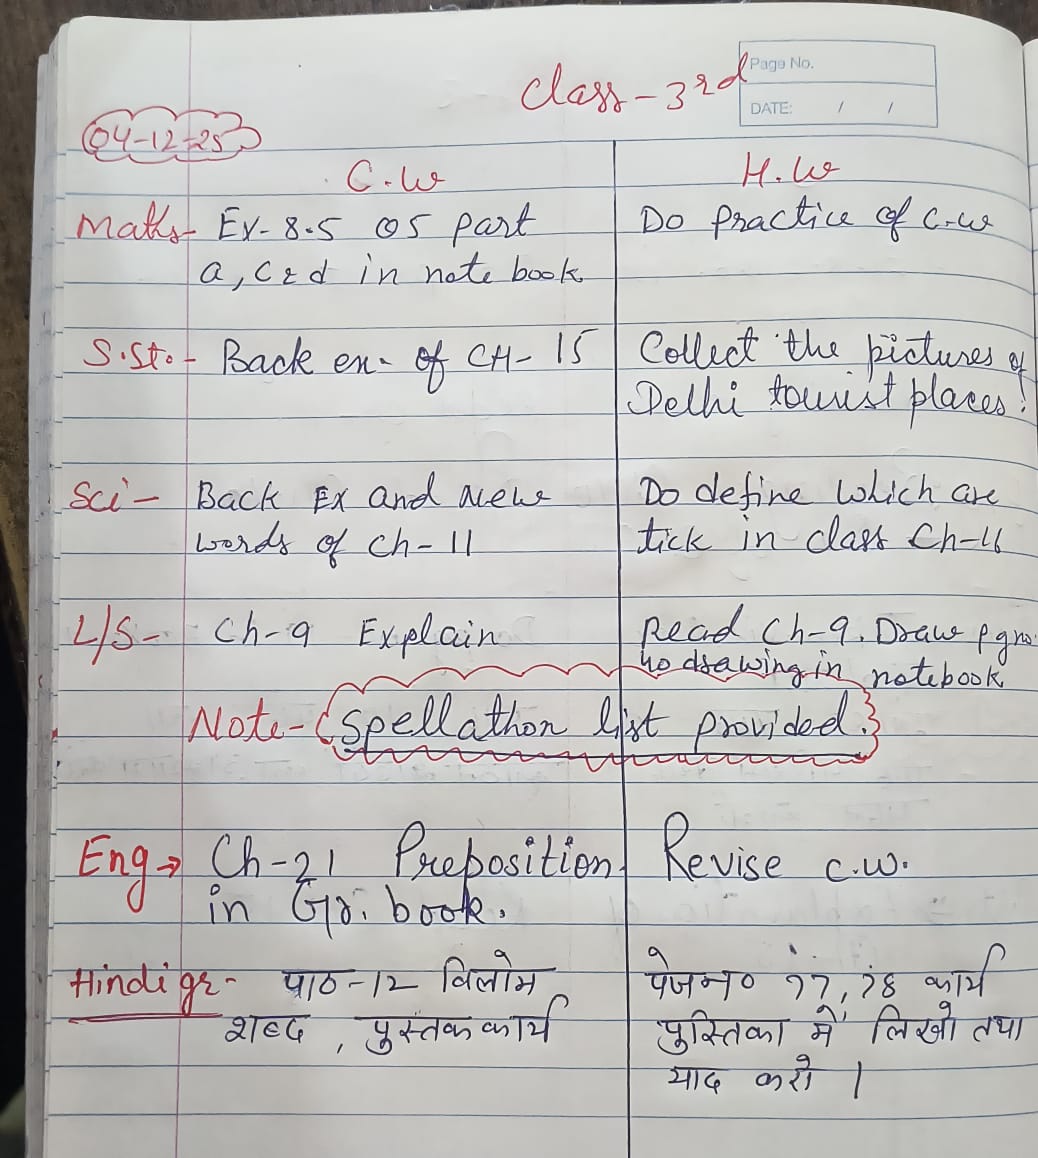 Class - 3rd
Page No.
DATE: / /
04-12-25
C.W
H.W
Maths- Ex- 8.5 Q5 part
a, c & d in note book
Do practice of C.W
S.St.- Back ex- of CH- 15
Collect the pictures of
Delhi tourist places.
Sci- Back Ex and new
words of Ch- 11
Do define which are
tick in class Ch-11
L/S- Ch-9 Explain
Read Ch-9. Draw pg no
40 drawing in notebook
Note- (Spellathon list provided.}
Eng→ Ch-21 Preposition
in Gr. book.
Revise c.w.
Hindi gr- पाठ-12 विलोम
शब्द, पुस्तक कार्य
पेज न० 77, 78 कार्य
पुस्तिका में लिखो तथा
याद करो ।